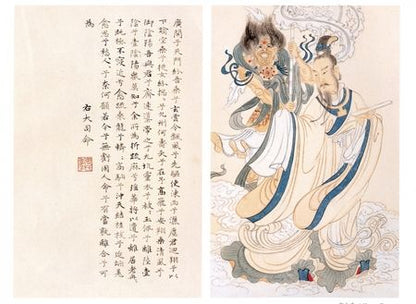 廣開兮天門紛吾乘兮玄雲令飄風兮先驅使涷雨兮灑塵君迴翔兮以
下踰空桑兮從女紛總總兮九州何壽夭兮在予高飛兮安翔乘清氣兮
御陰陽吾與君兮齋速導帝之兮九坑靈衣兮被被玉佩兮陸離壹
陰兮壹陽眾莫知兮余所為折疏麻兮瑤華將以遺兮離居老冉冉
兮既極不寖近兮愈疏乘龍兮轔轔高馳兮沖天結桂枝兮延竚羌
愈思兮愁人愁人兮奈何願若今兮無虧固人命兮有當孰離合兮可
為
右大司命